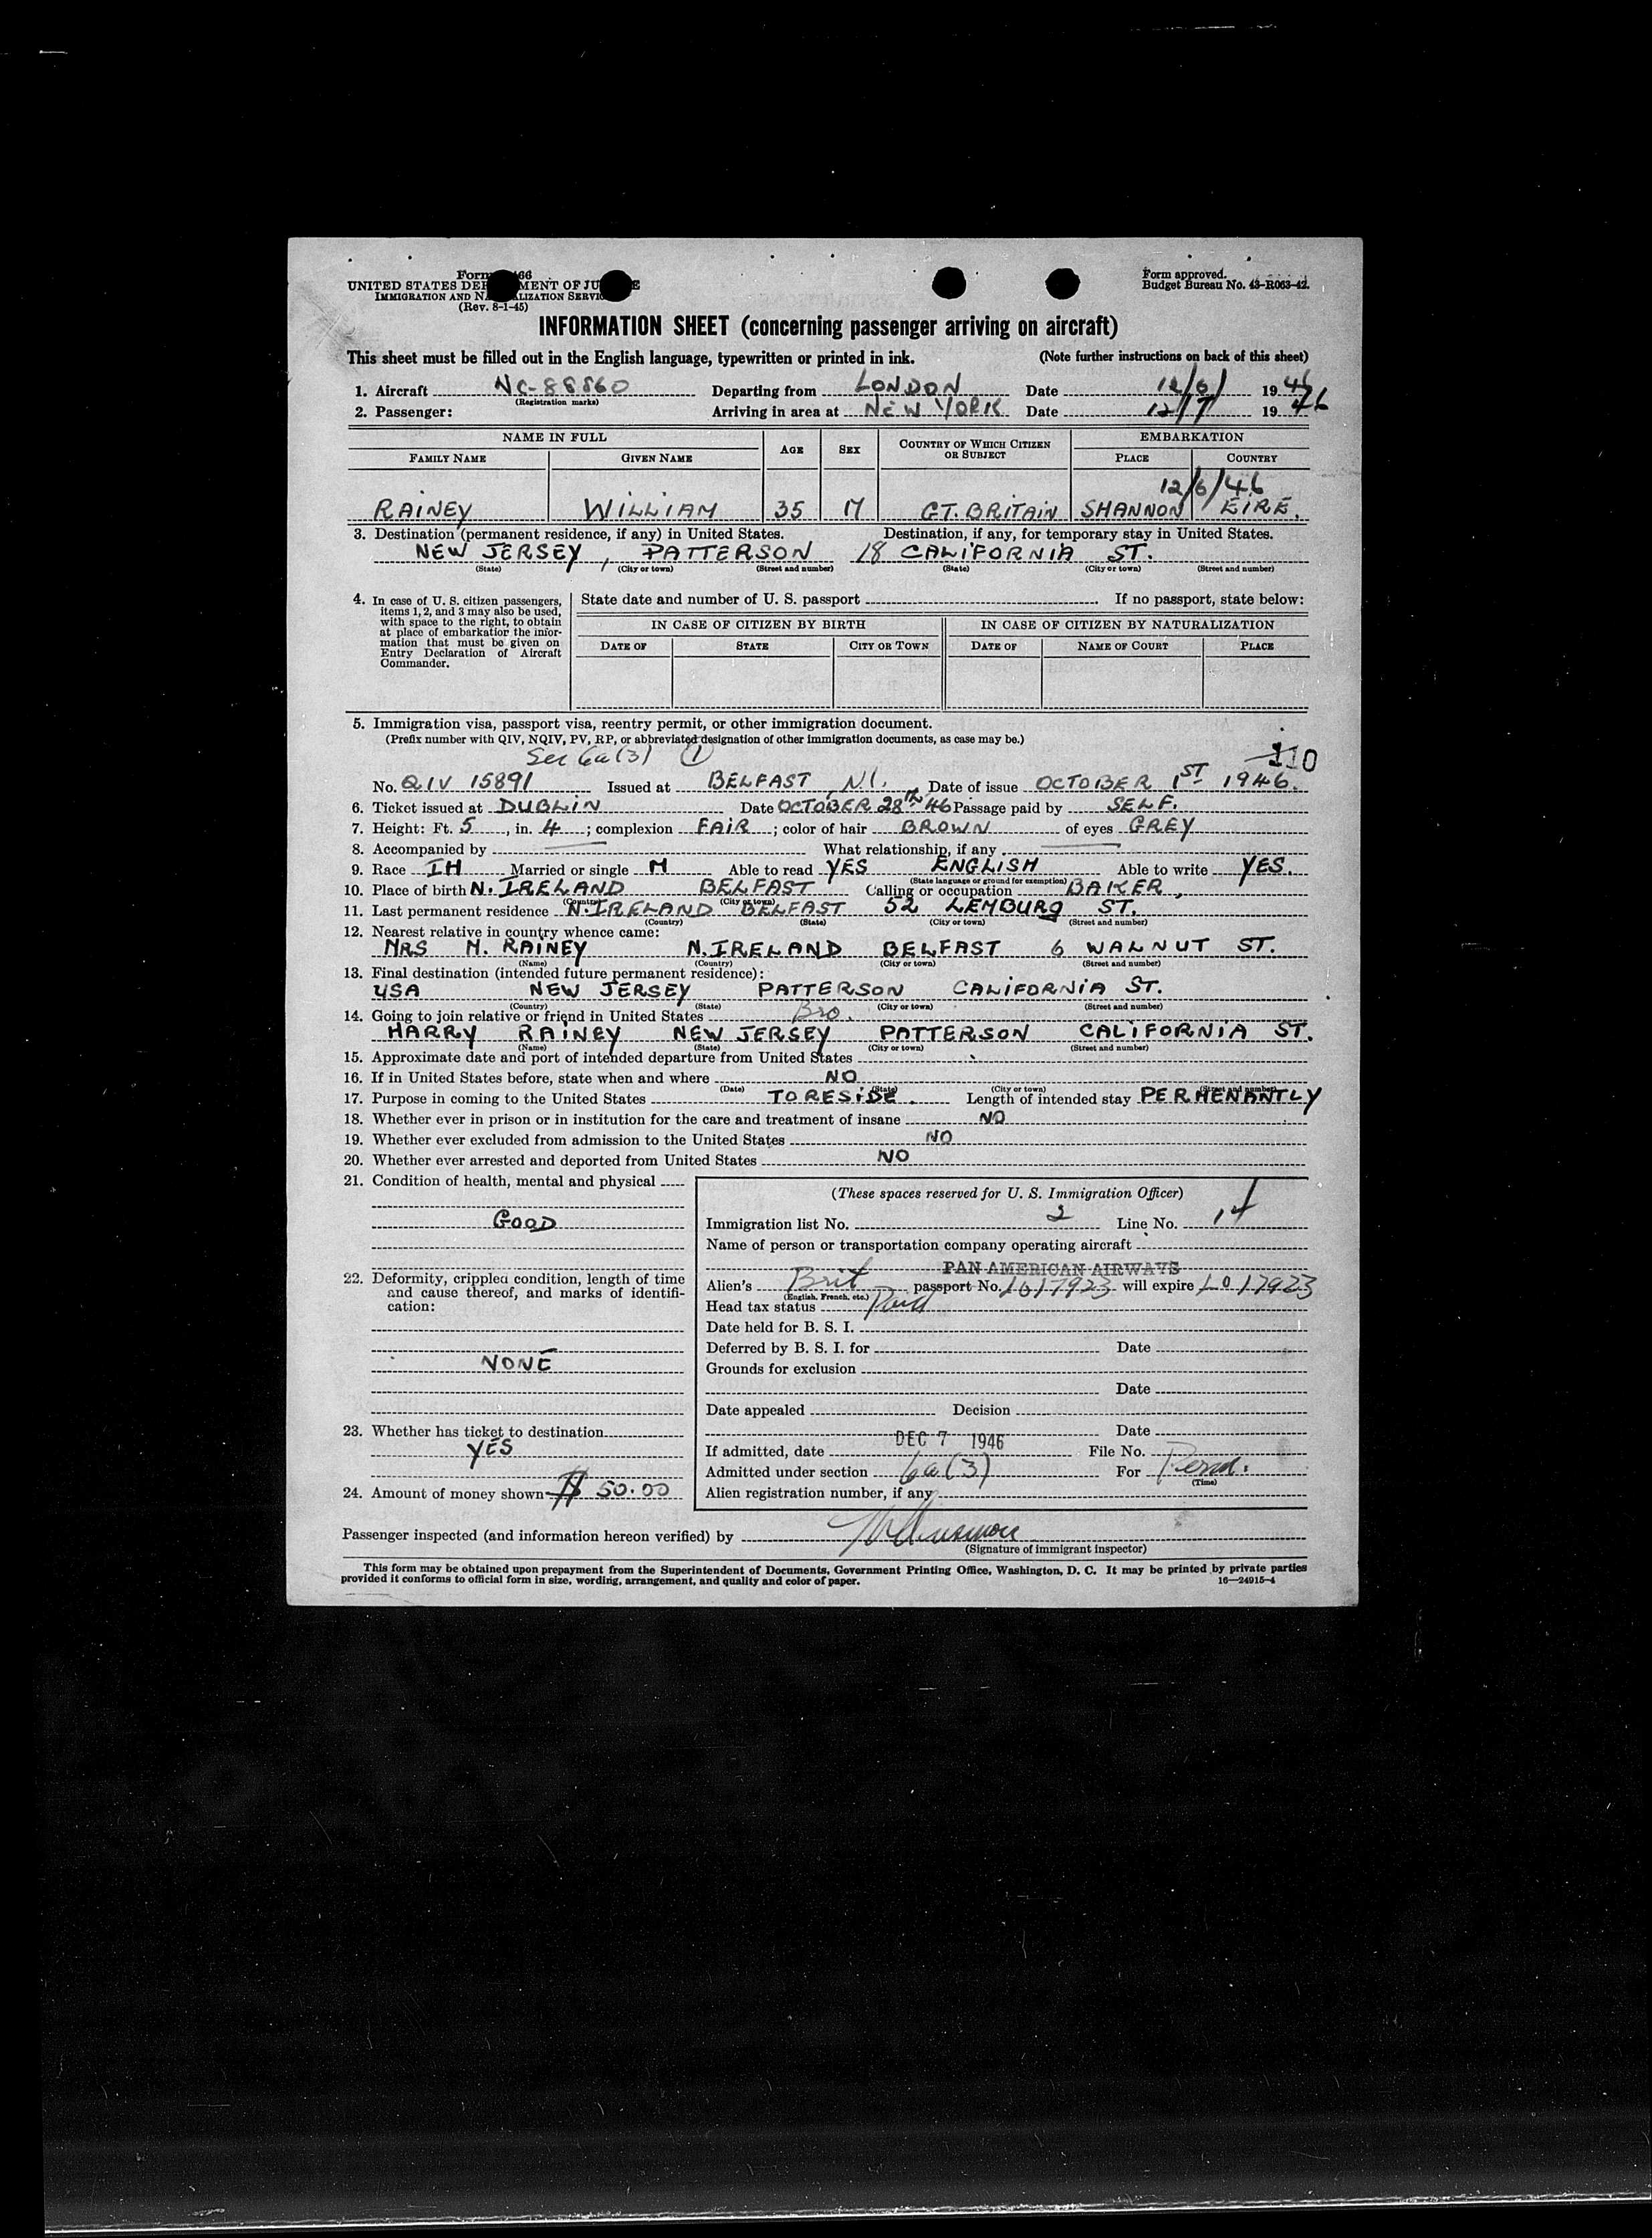 Form 66
UNITED STATES DEP MENT OF JU E
IMMIGRATION AND N ALIZATION SERVIC
(Rev. 8-1-45)
Form approved.
Budget Bureau No. 43-R063-42.
INFORMATION SHEET (concerning passenger arriving on aircraft)
This sheet must be filled out in the English language, typewritten or printed in ink. (Note further instructions on back of this sheet)
1. Aircraft NC-88860 Departing from LONDON Date 12/6/ 1946
(Registration marks)
2. Passenger: Arriving in area at NEW YORK Date 12/7 1946
NAME IN FULL AGE SEX COUNTRY OF WHICH CITIZEN OR SUBJECT EMBARKATION
FAMILY NAME GIVEN NAME PLACE COUNTRY
12/6/46
RAINEY WILLIAM 35 M GT. BRITAIN SHANNON EIRE.
3. Destination (permanent residence, if any) in United States. Destination, if any, for temporary stay in United States.
NEW JERSEY, PATTERSON 18 CALIFORNIA ST.
(State) (City or town) (Street and number) (State) (City or town) (Street and number)
4. In case of U. S. citizen passengers, items 1, 2, and 3 may also be used, with space to the right, to obtain at place of embarkation the information that must be given on Entry Declaration of Aircraft Commander.
State date and number of U. S. passport If no passport, state below:
IN CASE OF CITIZEN BY BIRTH IN CASE OF CITIZEN BY NATURALIZATION
DATE OF STATE CITY OR TOWN DATE OF NAME OF COURT PLACE
5. Immigration visa, passport visa, reentry permit, or other immigration document.
(Prefix number with QIV, NQIV, PV, RP, or abbreviated designation of other immigration documents, as case may be.)
Sec 6a(3) 1 110
No. QIV 15891 Issued at BELFAST, N.I. Date of issue OCTOBER 1ST 1946.
6. Ticket issued at DUBLIN Date OCTOBER 28th 46 Passage paid by SELF.
7. Height: Ft. 5, in. 4; complexion FAIR; color of hair BROWN of eyes GREY
8. Accompanied by What relationship, if any
9. Race IH Married or single M Able to read YES ENGLISH Able to write YES.
(State language or ground for exemption)
10. Place of birth N. IRELAND BELFAST Calling or occupation BAKER,
(Country) (City or town)
11. Last permanent residence N. IRELAND BELFAST 52 LEMBURG ST.
(Country) (State) (City or town) (Street and number)
12. Nearest relative in country whence came:
MRS M. RAINEY N. IRELAND BELFAST 6 WALNUT ST.
(Name) (Country) (City or town) (Street and number)
13. Final destination (intended future permanent residence):
USA NEW JERSEY PATTERSON CALIFORNIA ST.
(Country) (State) (City or town) (Street and number)
14. Going to join relative or friend in United States Bro.
HARRY RAINEY NEW JERSEY PATTERSON CALIFORNIA ST.
(Name) (State) (City or town) (Street and number)
15. Approximate date and port of intended departure from United States
16. If in United States before, state when and where NO
(Date) (State) (City or town) (Street and number)
17. Purpose in coming to the United States TO RESIDE. Length of intended stay PERMENANTLY
18. Whether ever in prison or in institution for the care and treatment of insane NO
19. Whether ever excluded from admission to the United States NO
20. Whether ever arrested and deported from United States NO
21. Condition of health, mental and physical
GOOD
22. Deformity, crippled condition, length of time and cause thereof, and marks of identification:
NONE
23. Whether has ticket to destination
YES
24. Amount of money shown $ 50.00
(These spaces reserved for U. S. Immigration Officer)
Immigration list No. 2 Line No. 14
Name of person or transportation company operating aircraft
PAN AMERICAN AIRWAYS
Alien's Brit passport No. L017923 will expire L017923
(English, French, etc.)
Head tax status Paid
Date held for B. S. I.
Deferred by B. S. I. for Date
Grounds for exclusion
Date
Date appealed Decision
Date
If admitted, date DEC 7 1946 File No.
Admitted under section 6a(3) For Perm.
(Time)
Alien registration number, if any
Passenger inspected (and information hereon verified) by
(Signature of immigrant inspector)
This form may be obtained upon prepayment from the Superintendent of Documents, Government Printing Office, Washington, D. C. It may be printed by private parties
provided it conforms to official form in size, wording, arrangement, and quality and color of paper. 16—24915-4